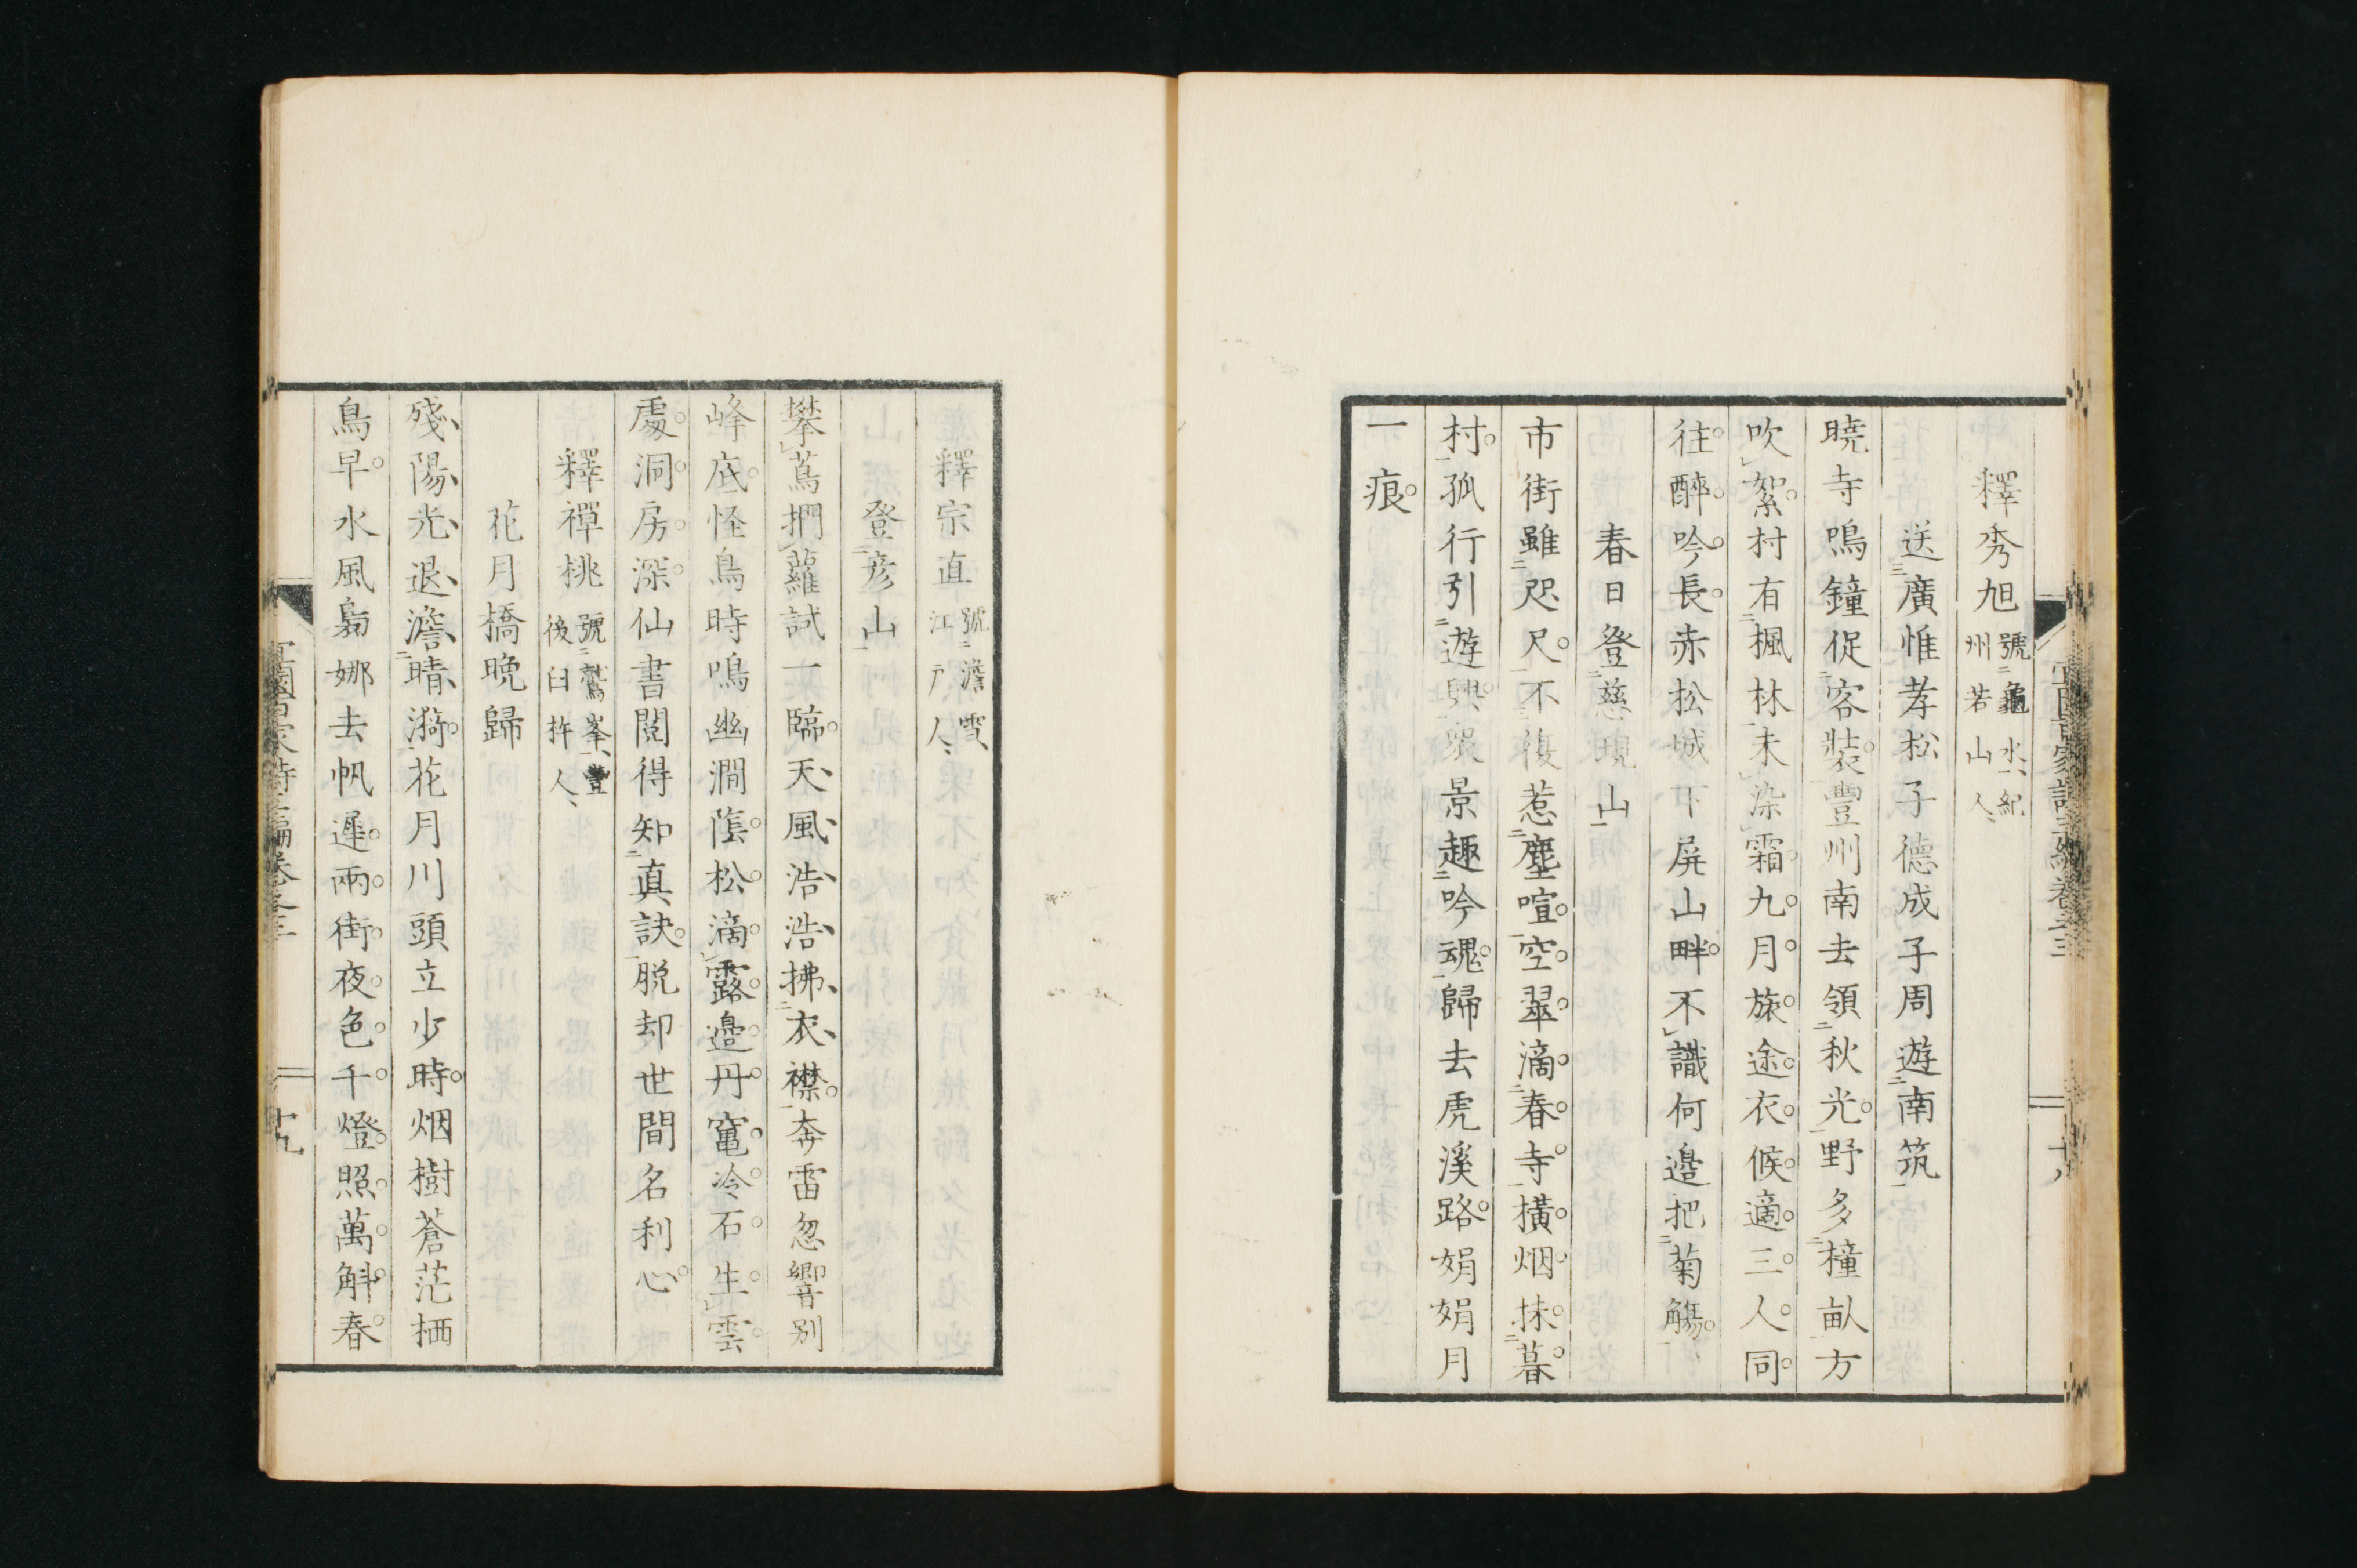 釋秀旭 號龜水紀州若山人
送廣惟孝松子德成子周遊南筑
曉寺鳴鐘促客裝豐州南去領秋光野多橦畝方
吹絮村有楓林未染霜九月旅途衣候適三人同
往醉吟長赤松城下屏山畔不識何邉把菊觴
春日登慈現山
市街雖咫尺不復惹塵喧空翠滴春寺橫烟抹暮
村孤行引遊興眾景趣吟魂歸去虎溪路娟娟月
一痕
十八
釋宗直 號澹雪江戶人
登彦山
攀蔦捫蘿試一臨天風浩浩拂衣襟奔雷忽響別
峰底怪鳥時鳴幽澗陰松滴露邉丹竃冷石生雲
處洞房深仙書閱得知真訣脱却世間名利心
釋禪桃 號鷲峯豐後臼杵人
花月橋晩歸
殘陽光退澹晴漪花月川頭立少時烟樹蒼茫栖
鳥早水風裊娜去帆遲兩街夜色千燈照萬斛春
宜園百家詩三編卷之三
十九